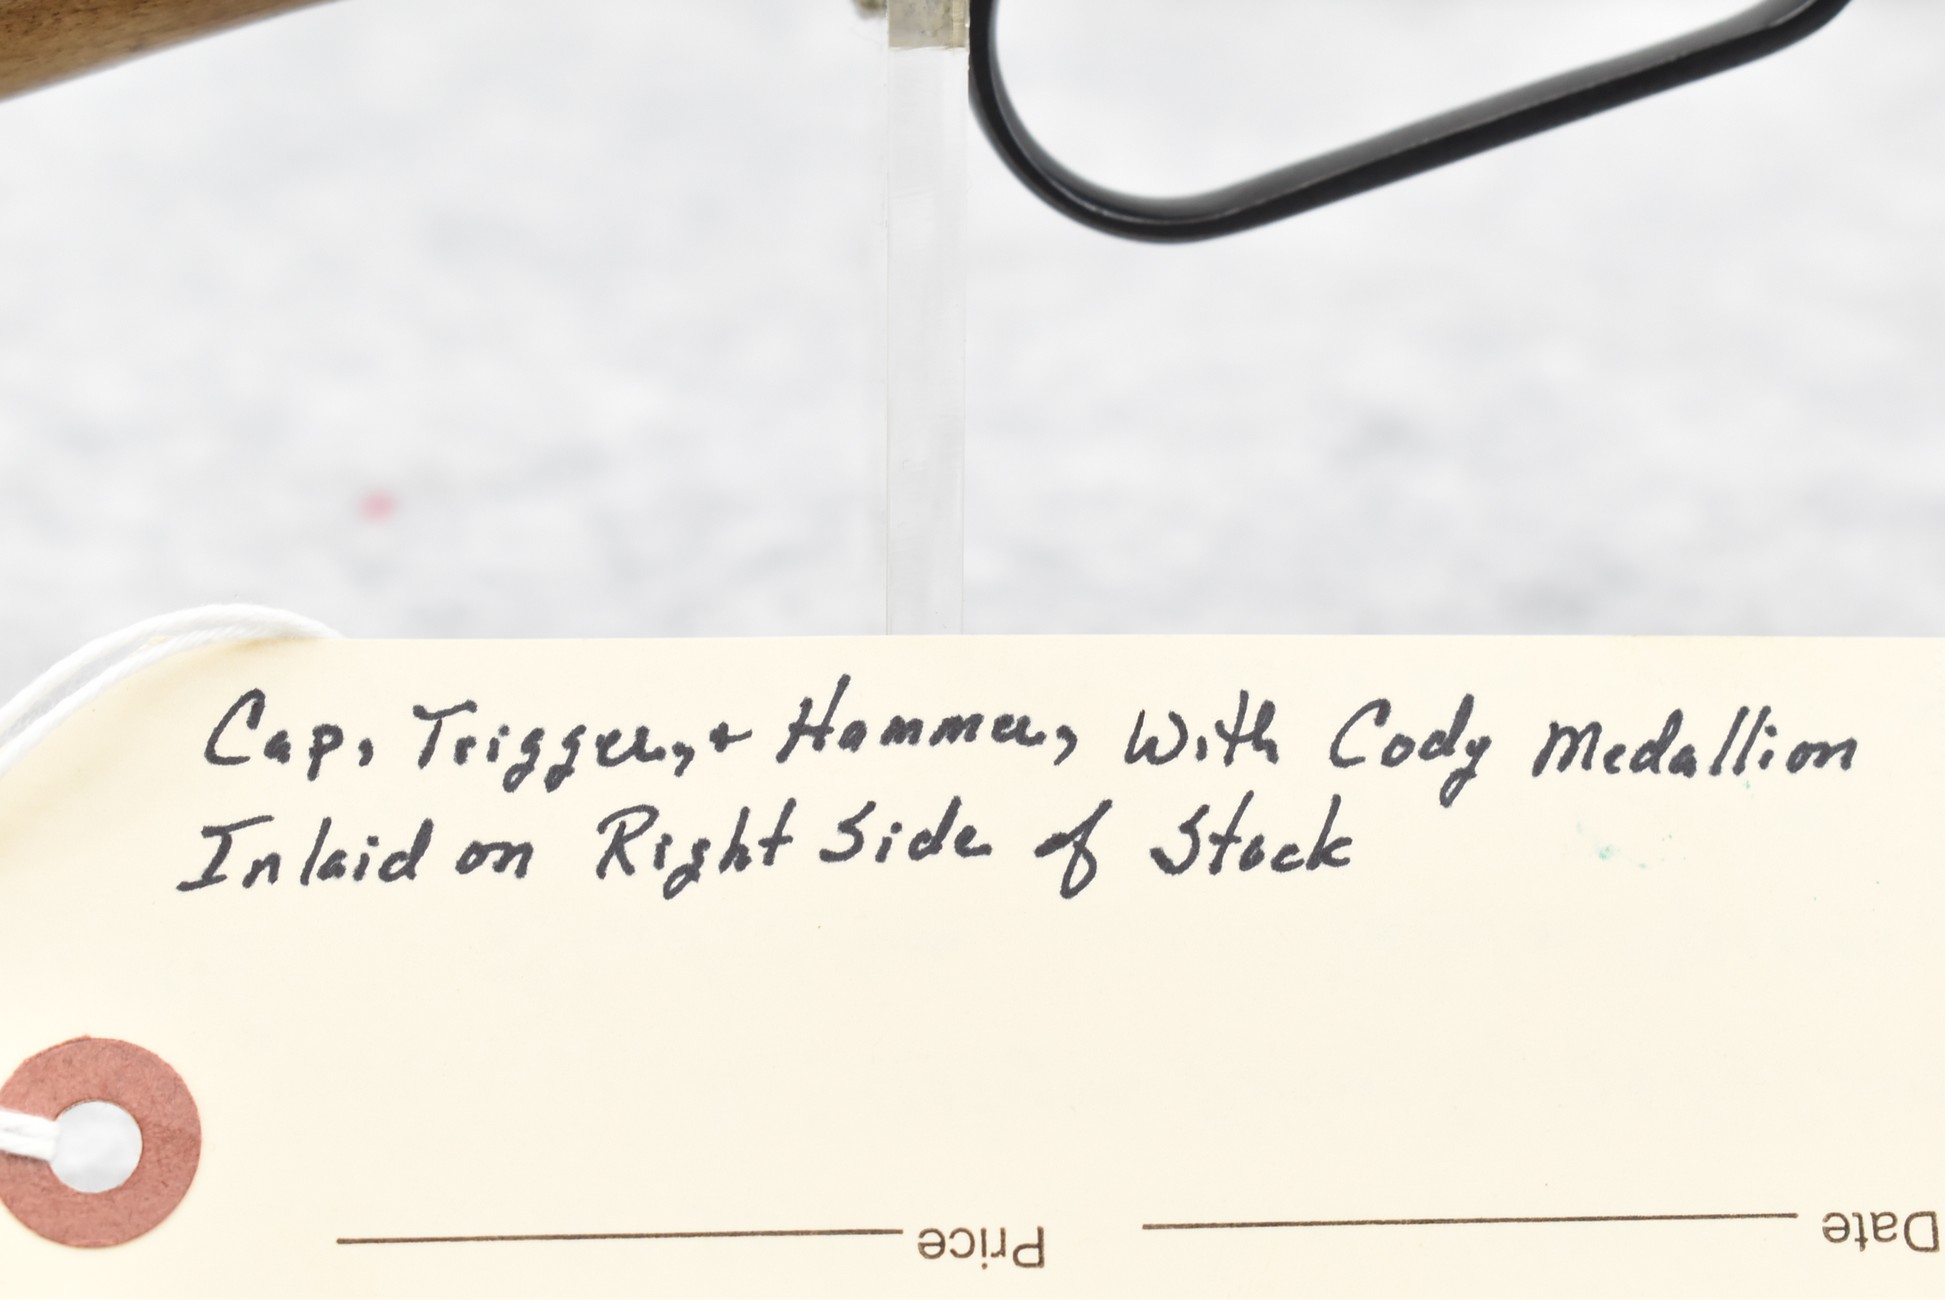 Cap, Trigger, + Hammer, With Cody Medallion
Inlaid on Right Side of Stock
Price
Date